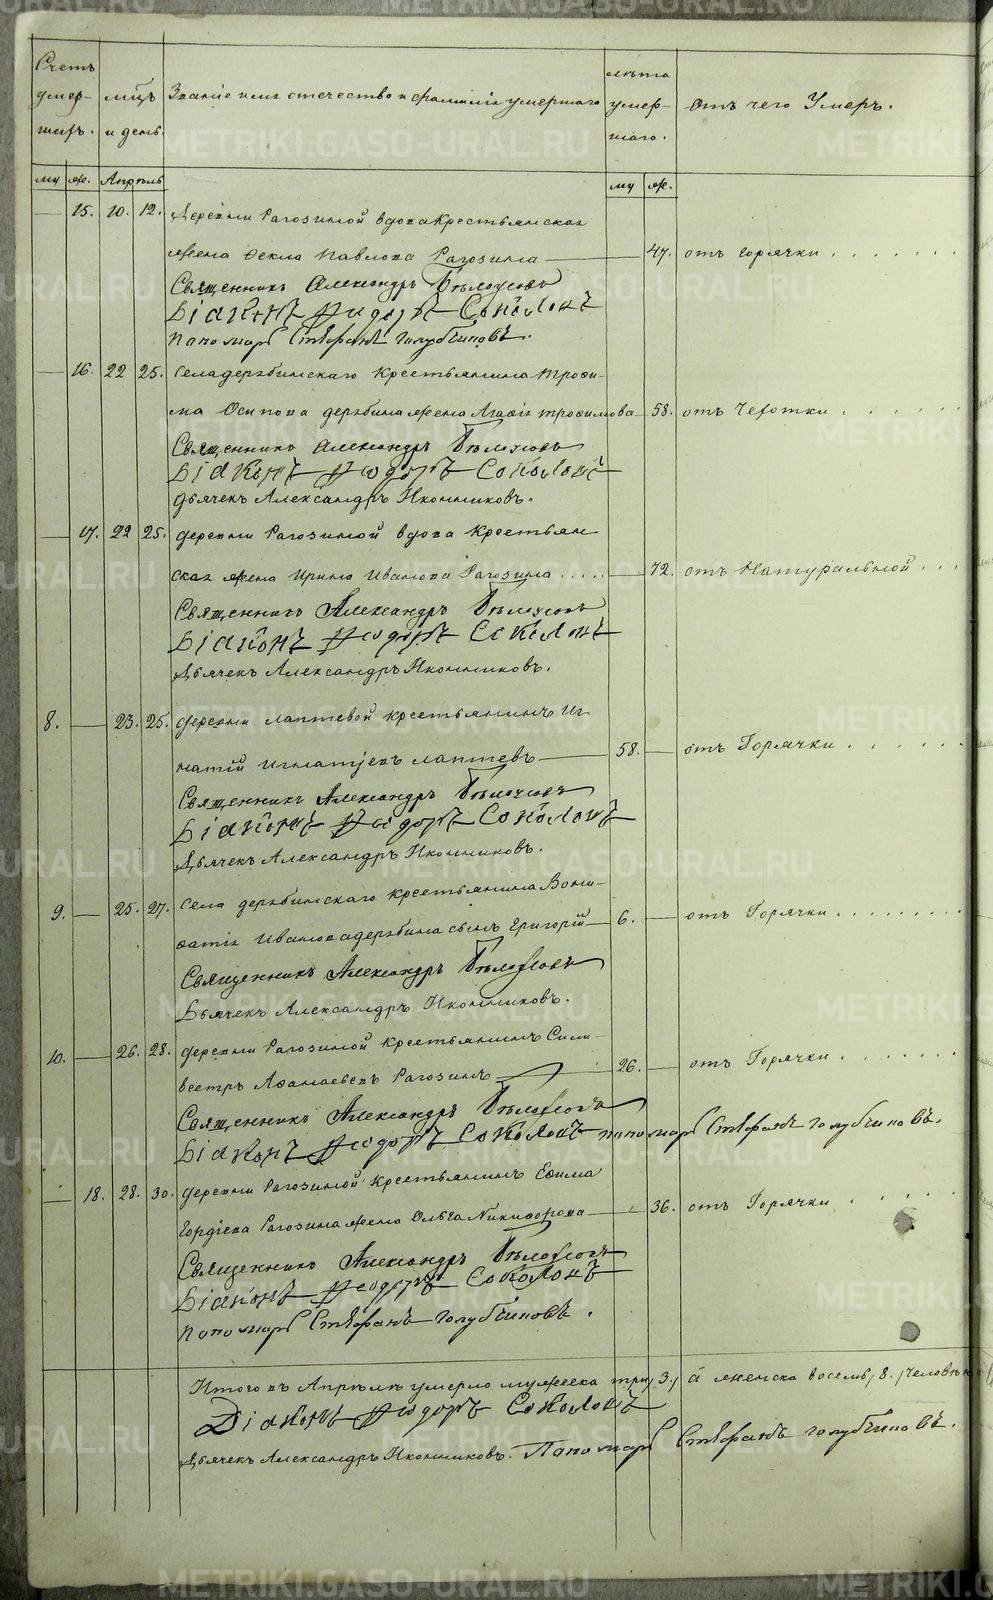 Счетъ умер- шихъ.
мцъ и день.
Званіе имя отечество и фамилія умершаго
лѣта умер- шаго.
отъ чего Умеръ.
му ж. Апрѣль му ж.
— 15. 10. 12. Деревни Рагозиной вдова Крестьянская
жена Фекла Павлова Рагозина — 47. отъ горячки
Священникъ Александръ
Діаконъ Ѳеодоръ Соколовъ
пономарь Стефанъ Голубчиковъ.
— 16. 22 25. Села дерябинскаго Крестьянина Трофи-
ма Осипова дерябина жена Агафія трофимова — 58. отъ Чехотки
Священникъ Александръ
Діаконъ Ѳеодоръ Соколовъ
Дьячекъ Александръ Иконниковъ.
— 17. 22 25. деревни Рагозиной вдова Крестьян
ская жена Ирина Иванова Рагозина — 72. отъ Натуральной
Священникъ Александръ
Діаконъ Ѳеодоръ Соколовъ
Дьячекъ Александръ Иконниковъ.
8. — 23. 25. деревни Лаптевой крестьянинъ Иг
натій Игнатіевъ Лаптевъ — 58. — отъ Горячки
Священникъ Александръ
Діаконъ Ѳеодоръ Соколовъ
Дьячекъ Александръ Иконниковъ.
9. — 25. 27. Села дерябинскаго крестьянина Вони-
фатія Иванова дерябина сынъ Григорій — 6. — отъ Горячки
Священникъ Александръ
Дьячекъ Александръ Иконниковъ.
10. — 26. 28. деревни Рагозиной Крестьянинъ Сили-
вестръ Афанасьевъ Рагозинъ — 26. — отъ Горячки
Священникъ Александръ
Діаконъ Ѳеодоръ Соколовъ пономарь Стефанъ Голубчиковъ.
— 18. 28. 30. деревни Рагозиной Крестьянинъ Ефима
Гордіева Рагозина жена Ольга Никифорова — 36. отъ Горячки
Священникъ Александръ
Діаконъ Ѳеодоръ Соколовъ
пономарь Стефанъ Голубчиковъ.
Итого въ Апрѣлѣ умерло мужеска три, 3, а женска восемь, 8, Человѣкъ
Діаконъ Ѳеодоръ Соколовъ
Дьячекъ Александръ Иконниковъ. Пономарь Стефанъ Голубчиковъ.
METRIKI.GASO-URAL.RU